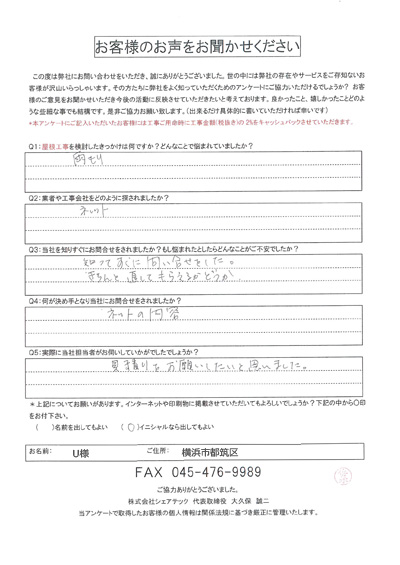 お客様のお声をお聞かせください
この度は弊社にお問い合わせをいただき、誠にありがとうございました。世の中には弊社の存在やサービスをご存知ないお
客様が沢山いらっしゃいます。その方たちに弊社をよく知っていただくためのアンケートにご協力いただけるでしょうか？ お客
様のご意見をお聞かせいただき今後の活動に反映させていただきたいと考えております。良かったこと、嬉しかったことどのよ
うな些細な事でも結構です。是非ご協力お願い致します。（出来るだけ具体的に書いていただければ幸いです）
*本アンケートにご記入いただいたお客様には工事ご用命時に工事金額(税抜き)の 2%をキャッシュバックさせていただきます。
Q1:屋根工事を検討したきっかけは何ですか？どんなことで悩まれていましたか？
雨もり
Q2:業者や工事会社をどのように探されましたか？
ネット
Q3:当社を知りすぐにお問合せをされましたか？もし悩まれたとしたらどんなことがご不安でしたか？
知ってすぐに問い合せをした。
きちんと直してもらえるかどうか
Q4:何が決め手となり当社にお問合せをされましたか？
ネットの内容
Q5:実際に当社担当者がお伺いしていかがでしたでしょうか？
見積りをお願いしたいと思いました。
＊上記についてお願いがあります。インターネットや印刷物に掲載させていただいてもよろしいでしょうか？下記の中から〇印
をお付下さい。
（ ）名前を出してもよい （〇）イニシャルなら出してもよい
お名前: U様 ご住所: 横浜市都筑区
FAX 045-476-9989
ご協力ありがとうございました。
株式会社シェアテック 代表取締役 大久保 誠二
当アンケートで取得したお客様の個人情報は関係法規に基づき厳正に管理いたします。